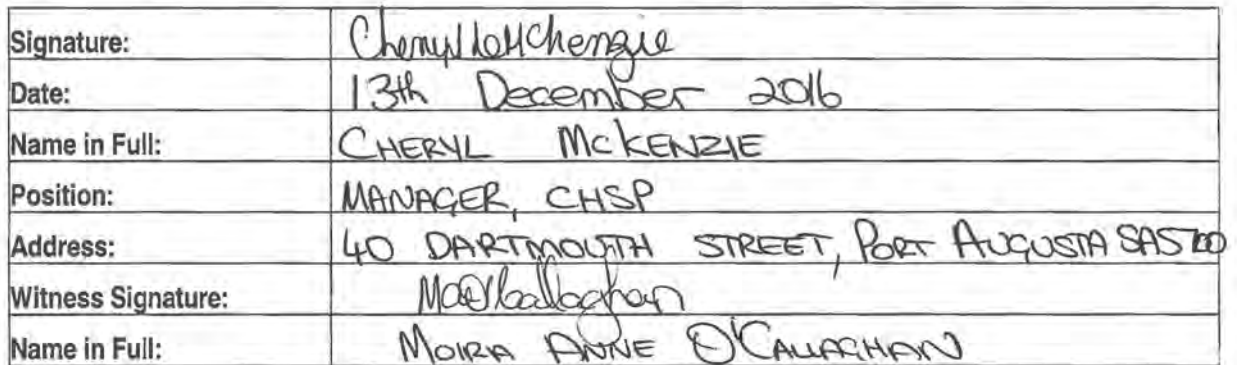 Signature: Cheryl McKenzie
Date: 13th December 2016
Name in Full: CHERYL McKENZIE
Position: MANAGER, CHSP
Address: 40 DARTMOUTH STREET, PORT AUGUSTA SA 5700
Witness Signature: MaO'Callaghan
Name in Full: MOIRA ANNE O'CALLAGHAN